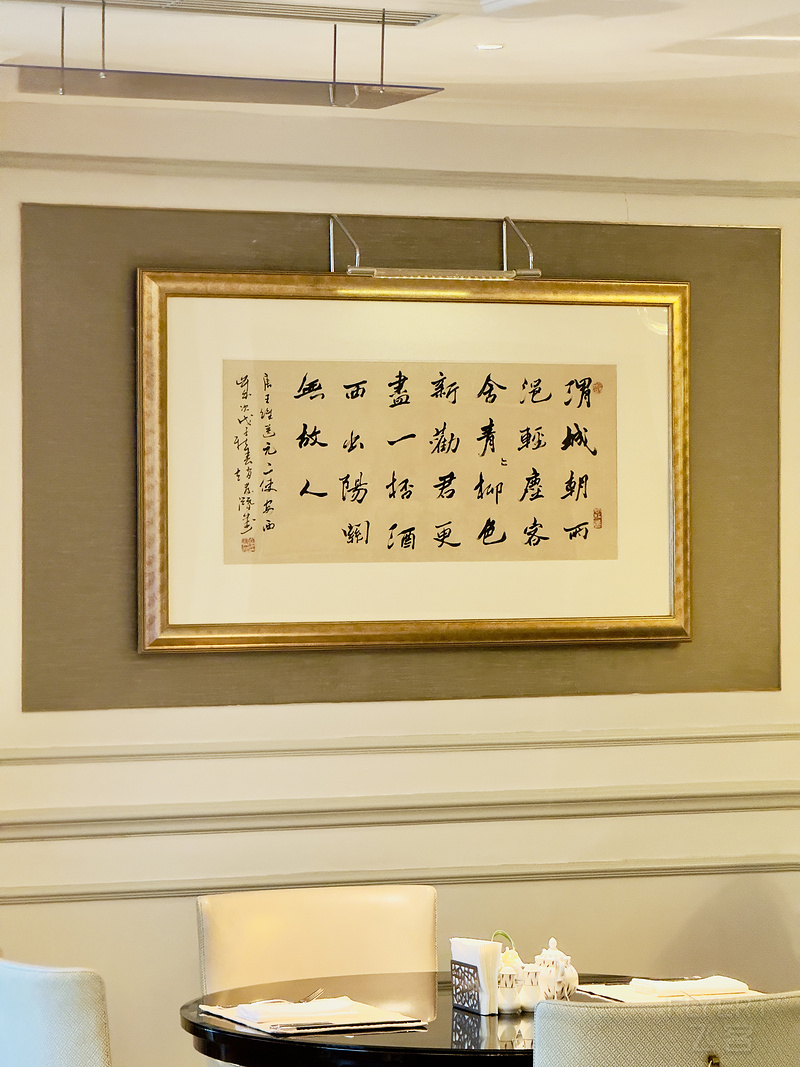 渭城朝雨
浥輕塵客
舍青々柳色
新勸君更
盡一杯酒
西出陽關
無故人
唐王維送元二使安西
歲次戊子